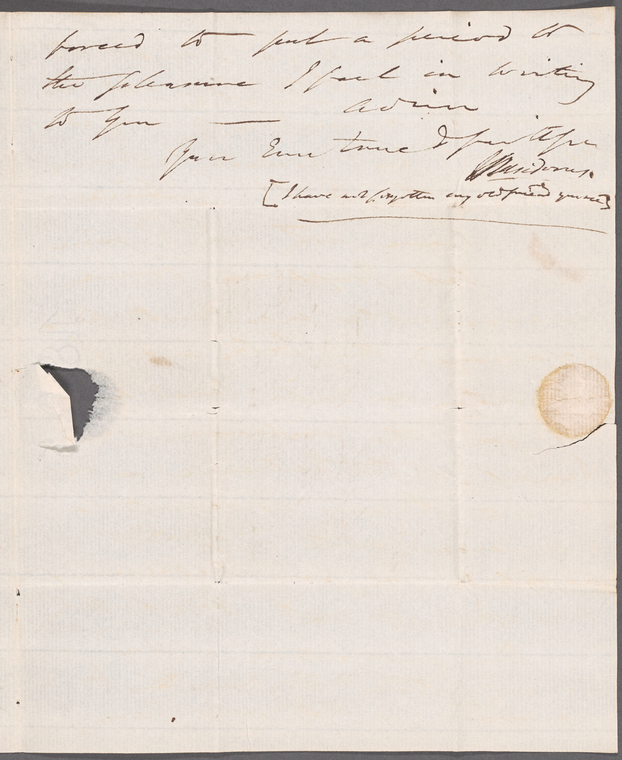 forced to put a period to
the pleasure I feel in writing
to you — adieu
Your Ever true &
[I have not forgotten my old friend